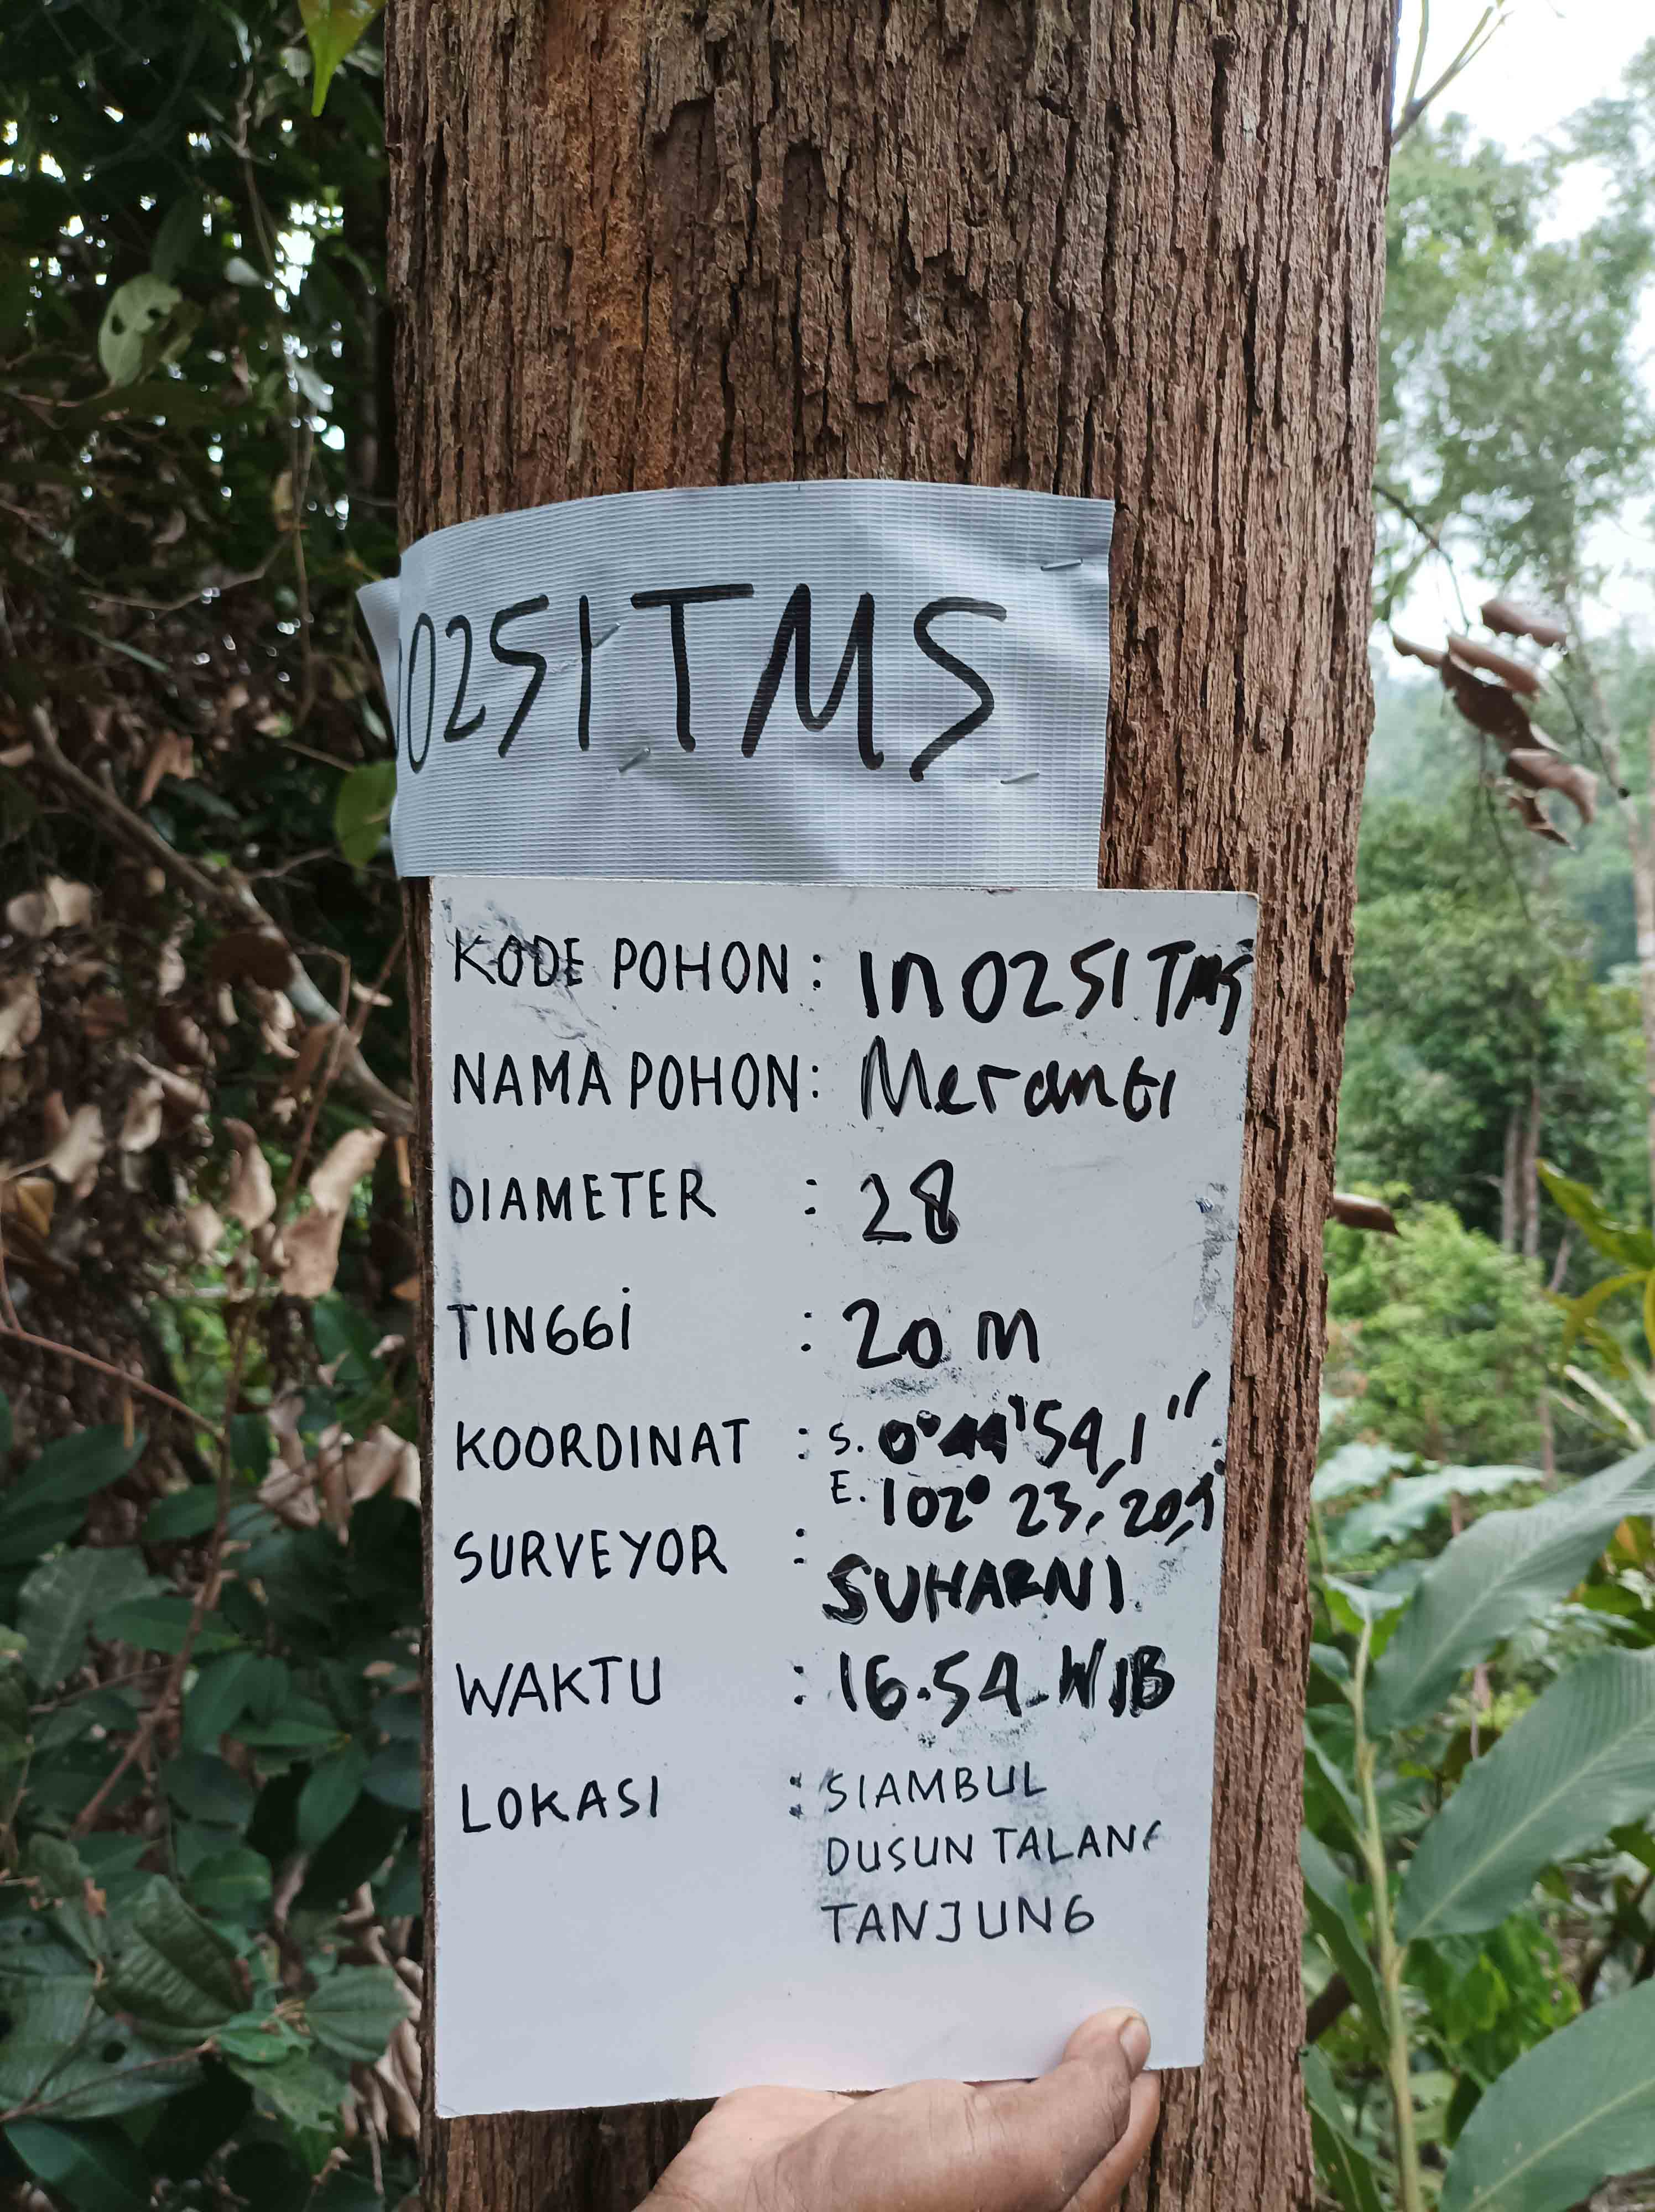 0251TMS
KODE POHON : 1n0251TMS
NAMA POHON : Meranti
DIAMETER : 28
TINGGi : 20 m
KOORDINAT : S. 0°44'54,1"
E. 102° 23, 20,1
SURVEYOR : SUHARNI
WAKTU : 16.54 WIB
LOKASI : SIAMBUL
DUSUN TALANG
TANJUNG